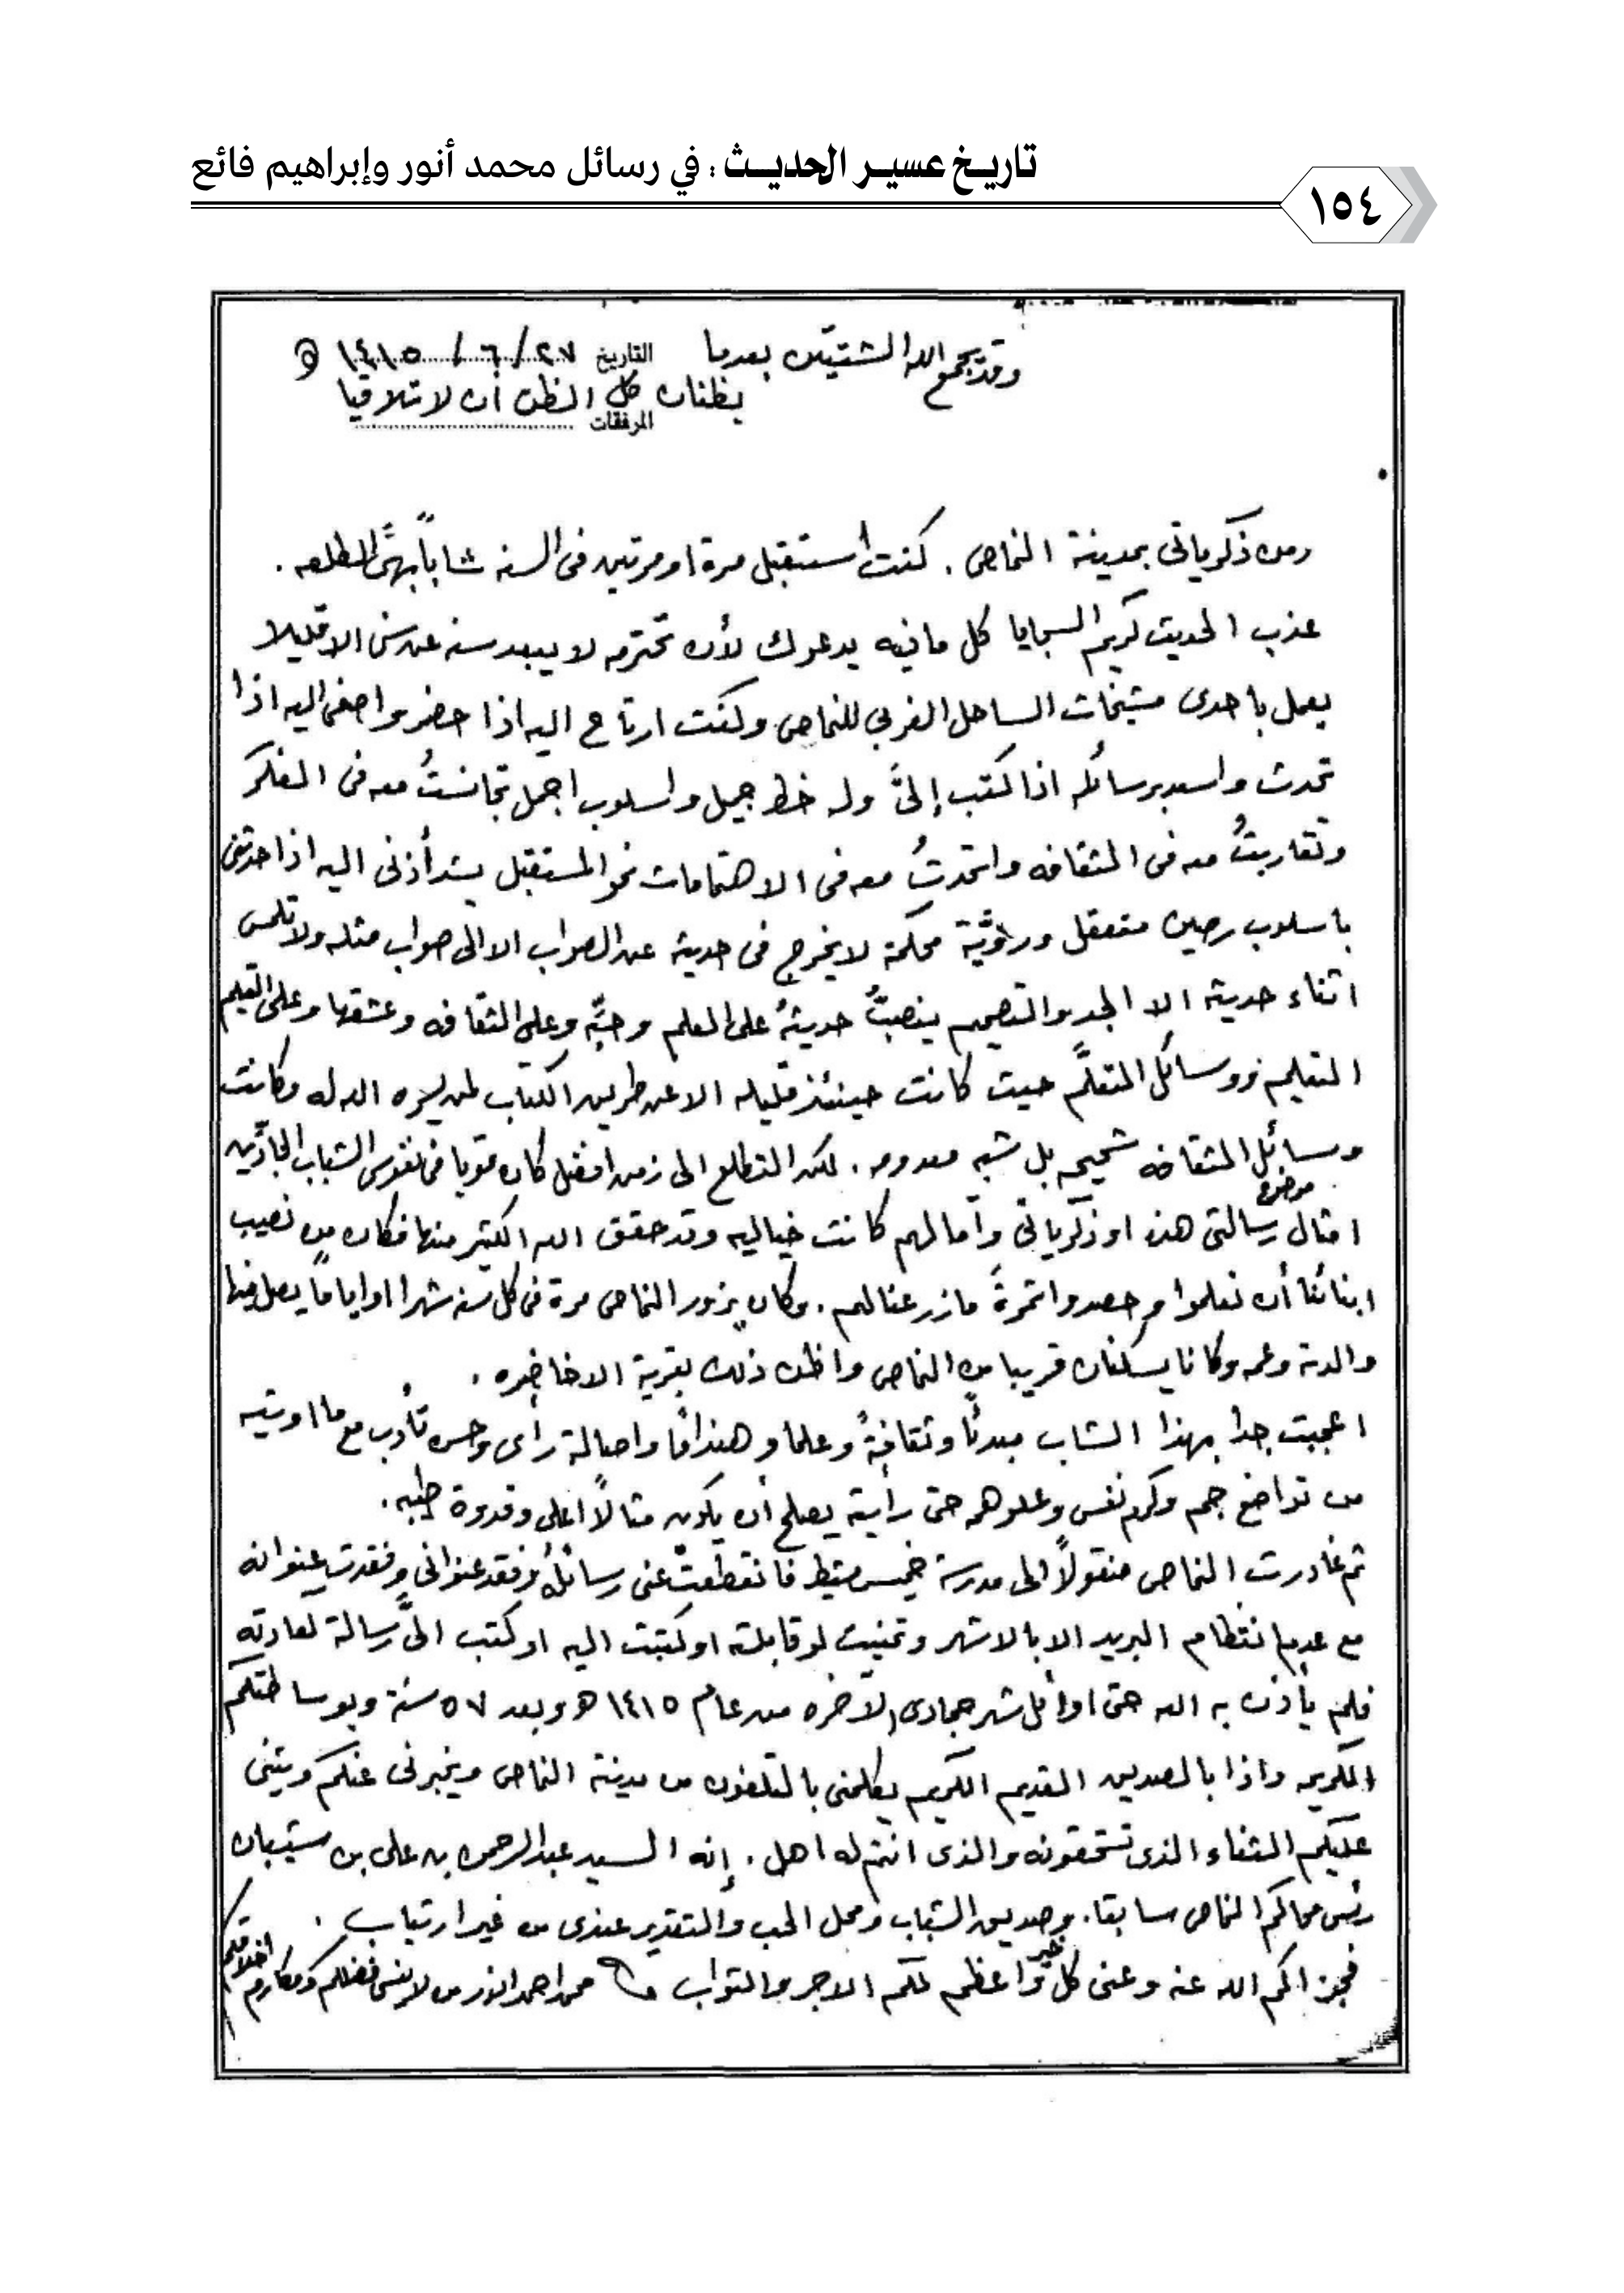 تاريخ عسير الحديث : في رسائل محمد أنور وإبراهيم فائع
١٥٤
وقد يجمع الله الشتيتين بعدما
التاريخ ٢٧ / ٦ / ١٤١٥ هـ
يظنان كل الظن أن لا تلاقيا
المرفقات
ومن ذكرياتى بمدينة النماص . كنت أستقبل مرة او مرتين فى السنه شاباً بهىَّ الطلعه .
عذب الحديث كريم السجايا كل ما فيه يدعوك لأن تحترمه لا يبعد سنه عن سنى الا قليلا
يعمل باحدى مشيخات الساحل الغربي للنماص وكنت ارتاح اليه اذا حضر واصغى اليه اذا
تحدث واسعد برسائله اذا كتب إلىَّ وله خط جميل واسلوب اجمل تجانستُ معه فى الفكر
وتقاربتُ معه فى الثقافه واتحدتُ معه فى الاهتمامات نحو المستقبل يشد أذنى اليه اذا حدثنى
باسلوب رصين متعقل ورويَّة محكمة لا يخرج فى حديثه عن الصواب الا الى صواب مثله ولا تلمس
اثناء حديثه الا الجد والتصميم ينصبُّ حديثهُ على العلم وحبِّه وعلى الثقافه وعشقها وعلى
التعليم ووسائل التعلُّم حيث كانت حينئذ قليله الا عن طريق الكتاب لمن يسره الله له وكانت
وسائل الثقافه شحيحه بل شبه معدومه . لكن التطلع الى زمن افضل كان قويا فى نفوس الشباب الجادِّين
امثال موضوع رسالتى هذه او ذكرياتى وآمالهم كانت خياليه وقد حقق الله الكثير منها فكان من نصيب
ابنائنا أن تعلموا وحصدوا ثمرةَ ما زرعنا لهم . وكان يزور النماص مرة فى كل سنه شهرا او اياماً يصل فيها
والدته وعمه وكانا يسكنان قريبا من النماص واظن ذلك بقرية الاخاضره .
اعجبت جدا بهذا الشاب مبدئًا وثقافةً وعلما وهندامًا واصالة رأى وحسن تأدب مع ما اوتيه
من تواضع جم وكرم نفس وعلو همه حتى رأيته يصلح أن يكون مثالاً اعلى وقدوة طيبه .
ثم غادرت النماص منقولاً الى مدرسة خميس مشيط فانقطعت عنى رسائلهُ وفقد عنوانى وفقدت عنوانه
مع عدم انتظام البريد الا بالاشهر وتمنيت لو قابلته او كتبت اليه او كتب الىَّ رسالة كعادته
فلم يأذن به الله حتى اوائل شهر جمادى الآخره من عام ١٤١٥ هـ وبعد ٥٧ سنة وبوساطتكم
الكريمه واذا بالصديق القديم الكريم يكلمنى بالتلفون من مدينة النماص ويخبرنى عنكم ويثنى
عليكم الثناء الذى تستحقونه والذى انتم له اهل . إنه السيد عبدالرحمن بن على بن شيبان
رئيس محاكم النماص سابقا . وصديق الشباب ومحل الحب والتقدير عندى من غير ارتياب .
فجزاكم الله عنه وعنى كل خير واعظم لكم الاجر والثواب محمد احمد انور من لا ينسى فضلكم ومكارم اخلاقكم